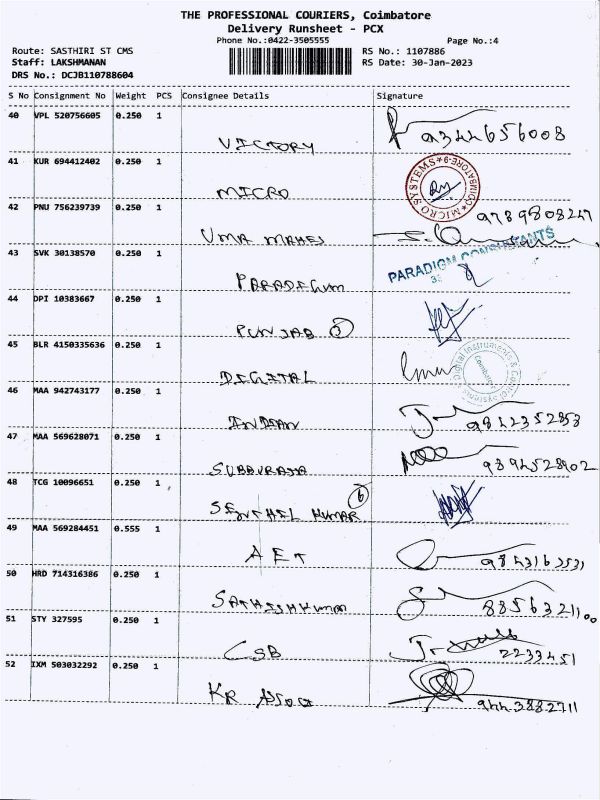 THE PROFESSIONAL COURIERS, Coimbatore
Delivery Runsheet - PCX
Phone No.:0422-3505555 Page No.:4
Route: SASTHIRI ST CMS RS No.: 1107886
Staff: LAKSHMANAN RS Date: 30-Jan-2023
DRS No.: DCJB110788604
S No Consignment No Weight PCS Consignee Details Signature
40 VPL 520756605 0.250 1
VICTORY 9344656008
41 KUR 694412402 0.250 1
MICRO MICRO SYSTEMS COIMBATORE-9
42 PNU 756239739 0.250 1
UMA MAHES 9789808247
43 SVK 30138570 0.250 1
PARADIGM PARADIGM CONSULTANTS
44 DPI 10383667 0.250 1
PUNJAB 3
45 BLR 4150335636 0.250 1
DIGITAL Digital Instruments & Control Systems Coimbatore
46 MAA 942743177 0.250 1
INDIAN 9842352858
47 MAA 569628071 0.250 1
SUBBURAJA 9894528902
48 TCG 10096651 0.250 1
SENTHIL KUMAR 6
49 MAA 569284451 0.555 1
AET 9843163531
50 HRD 714316386 0.250 1
SATHISHKUMAR 8856321100
51 STY 327595 0.250 1
CSB 2233451
52 IXM 503032292 0.250 1
KR ASSOCI 9443882711